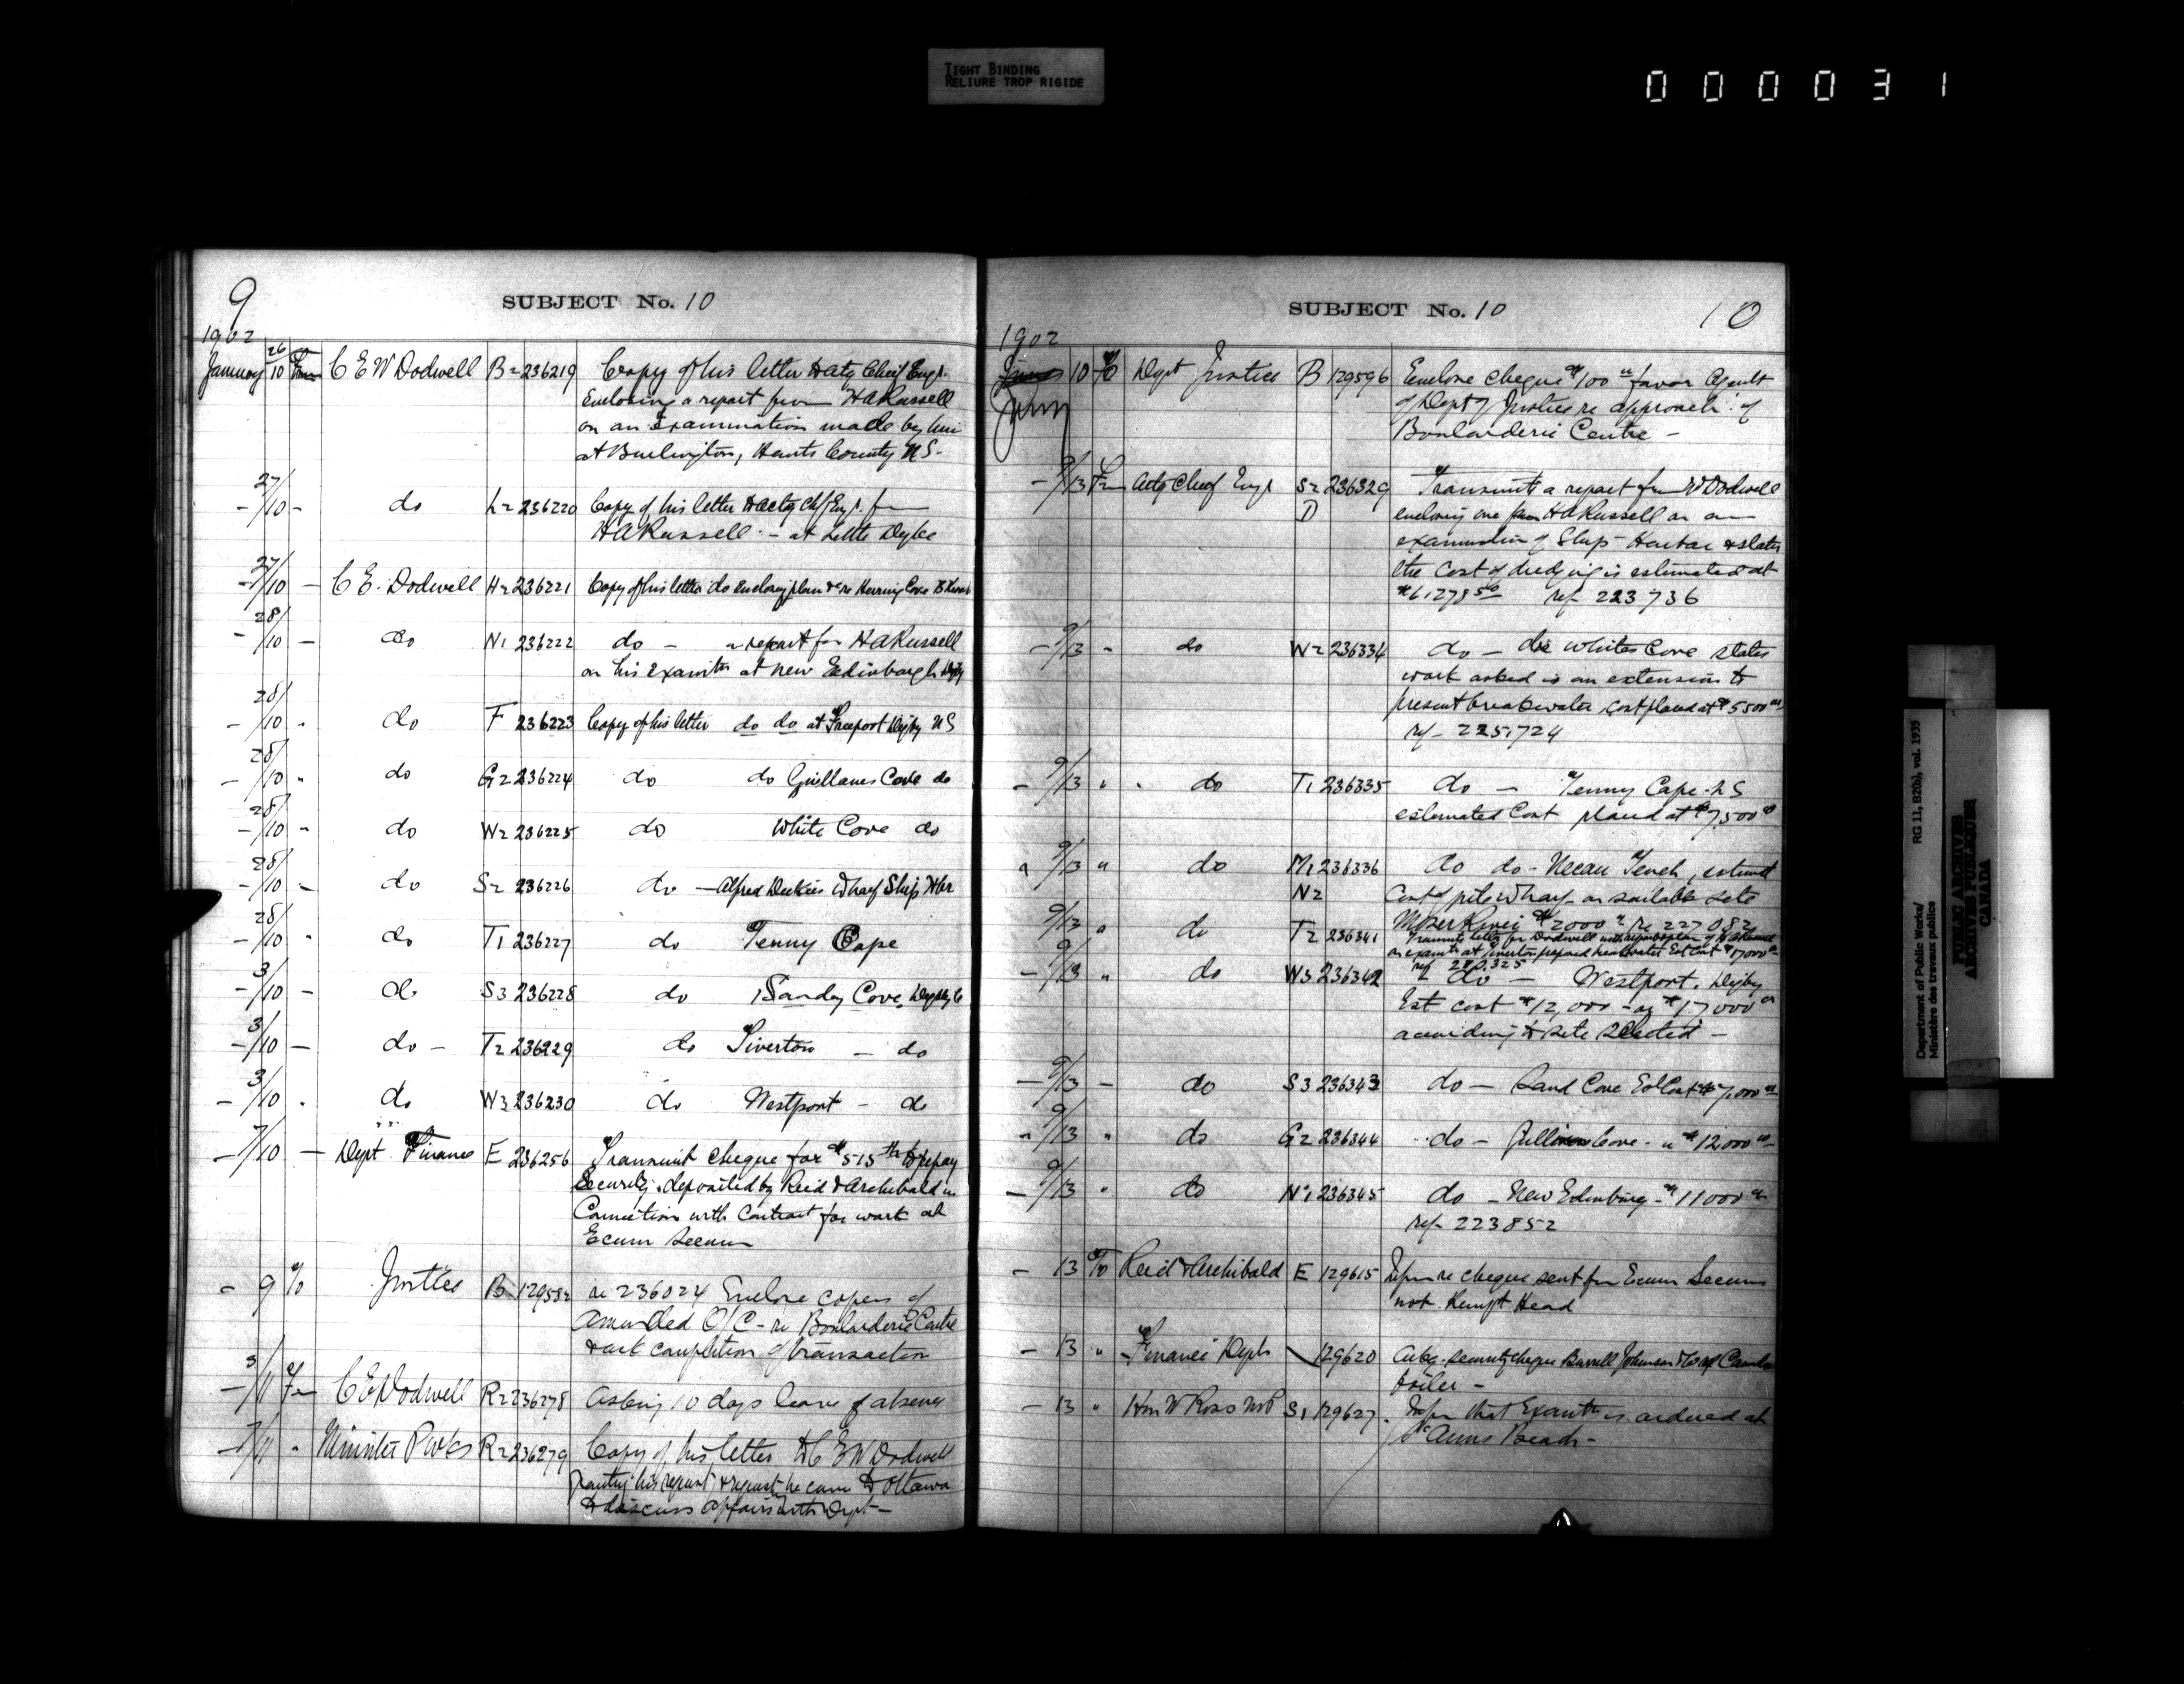 TIGHT BINDING
RELIURE TROP RIGIDE
000031
9
SUBJECT No. 10
1902
January 26/10 From C E W Dodwell B2 236219 Copy of his letter to Actg Chief Engr.
Enclosing a report from H A Russell
on an Examination made by him
at Burlington, Hants County N S-
- 27/10 - do L2 236220 Copy of his letter to actg Chf Engr. from
H A Russell - at Little
- 27/10 - C E. Dodwell H2 236221 Copy of his letter do enclosing plan &c re Herring Cove
- 28/10 - do N1 236222 do - a report from H A Russell
on his examtn at New Edinburgh Digby
- 28/10 " do F 236223 Copy of his letter do do at Freeport Digby N S
- 28/10 " do G2 236224 do do Gullivans Cove do
- 28/10 " do W2 236225 do White Cove do
- 28/10 - do S2 236226 do - Alfred Wharf Ship Hbr
- 28/10 " do T1 236227 do Tenny Cape
- 3/10 - do S3 236228 do Sandy Cove, Digby Co
- 3/10 - do - T2 236229 do Tiverton - do
- 3/10 " do W3 236230 do Westport - do
- 7/10 - Dept Finance E 236256 Transmit cheque for $515 to repay
Security deposited by Reid & Archibald in
Connection with Contract for work at
Ecum Secum
- 9 To Justice B 129582 re 236024 Enclose copies of
Amended O/C - re Boularderie Centre
& ask completion of transaction
- 3/11 Fm C E Dodwell R2 236278 Asking 10 days leave of absence
- 7/11 " Minister P Wks R2 236279 Copy of his letter to C E W Dodwell
granting his request, & request he come to Ottawa
to discuss affairs with Dept -
SUBJECT No. 10
10
1902
Jany 10 To Dept Justice B 129596 Enclose cheque $100 favor Agent
of Dept of Justice re approach of
Boularderie Centre -
- 9/13 Fm Actg Chief Engr S2 236329 Transmits a report from W Dodwell
D enclosing one from H A Russell on an
examination of Ship Harbor & states
the cost of dredging is estimated at
$6127850 ref 223736
- 9/13 " do W2 236334 do - do Whites Cove states
work asked is an extension to
present breakwater, cost placed at $5500
ref - 225724
- 9/13 " do T1 236335 do - Tenny Cape N S
estimated Cost placed at $7,500
" 9/13 " do M1 236336 do do - Necum Teuch, estimated
N2 Cost of pile wharf on suitable site
9/13 " do T2 236341 Moser River $2000 re 227082
Transmits letter from Dodwell with report & plan of H A Russell
on examtn at Tiverton proposed breakwater Est Cost $17000
- 9/13 " do W3 236342 do - Westport. Digby
Est cost $12,000 - or $17000
according to site selected -
- 9/13 - do S3 236343 do - Sand Cove Est Cost $7,000
" 9/13 " do G2 236344 do - Gullivan Cove - " $12,000
- 9/13 " do N1 236345 do - New Edinburg - $11000
ref - 223852
- 13 To Reid & Archibald E 129615 Inform re cheque sent for Ecum Secum
not Kempt Head
- 13 " Finance Dept 129620 security cheque Burrell Johnson
boiler -
- 13 " Hon W Ross MP S1 129627 Inform that Examtn is ordered at
St Anns Beach -
Department of Public Works/
Ministère des travaux publics
RG 11, B2(b), vol. 1935
PUBLIC ARCHIVES
ARCHIVES PUBLIQUES
CANADA